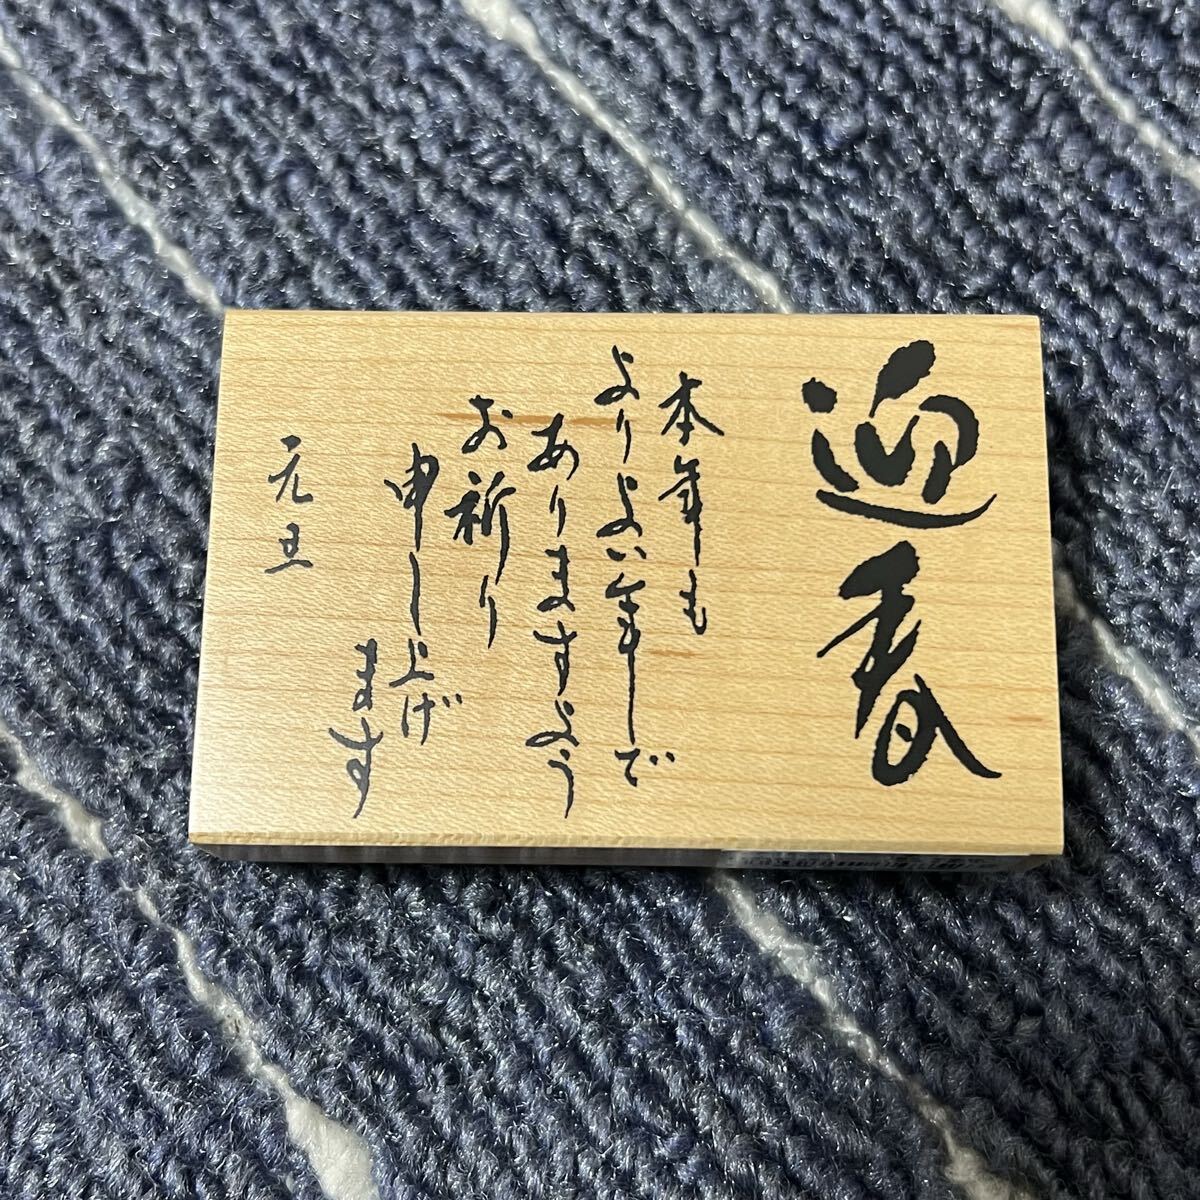 迎春
本年も
よりよい年で
ありますよう
お祈り
申し上げ
ます
元旦